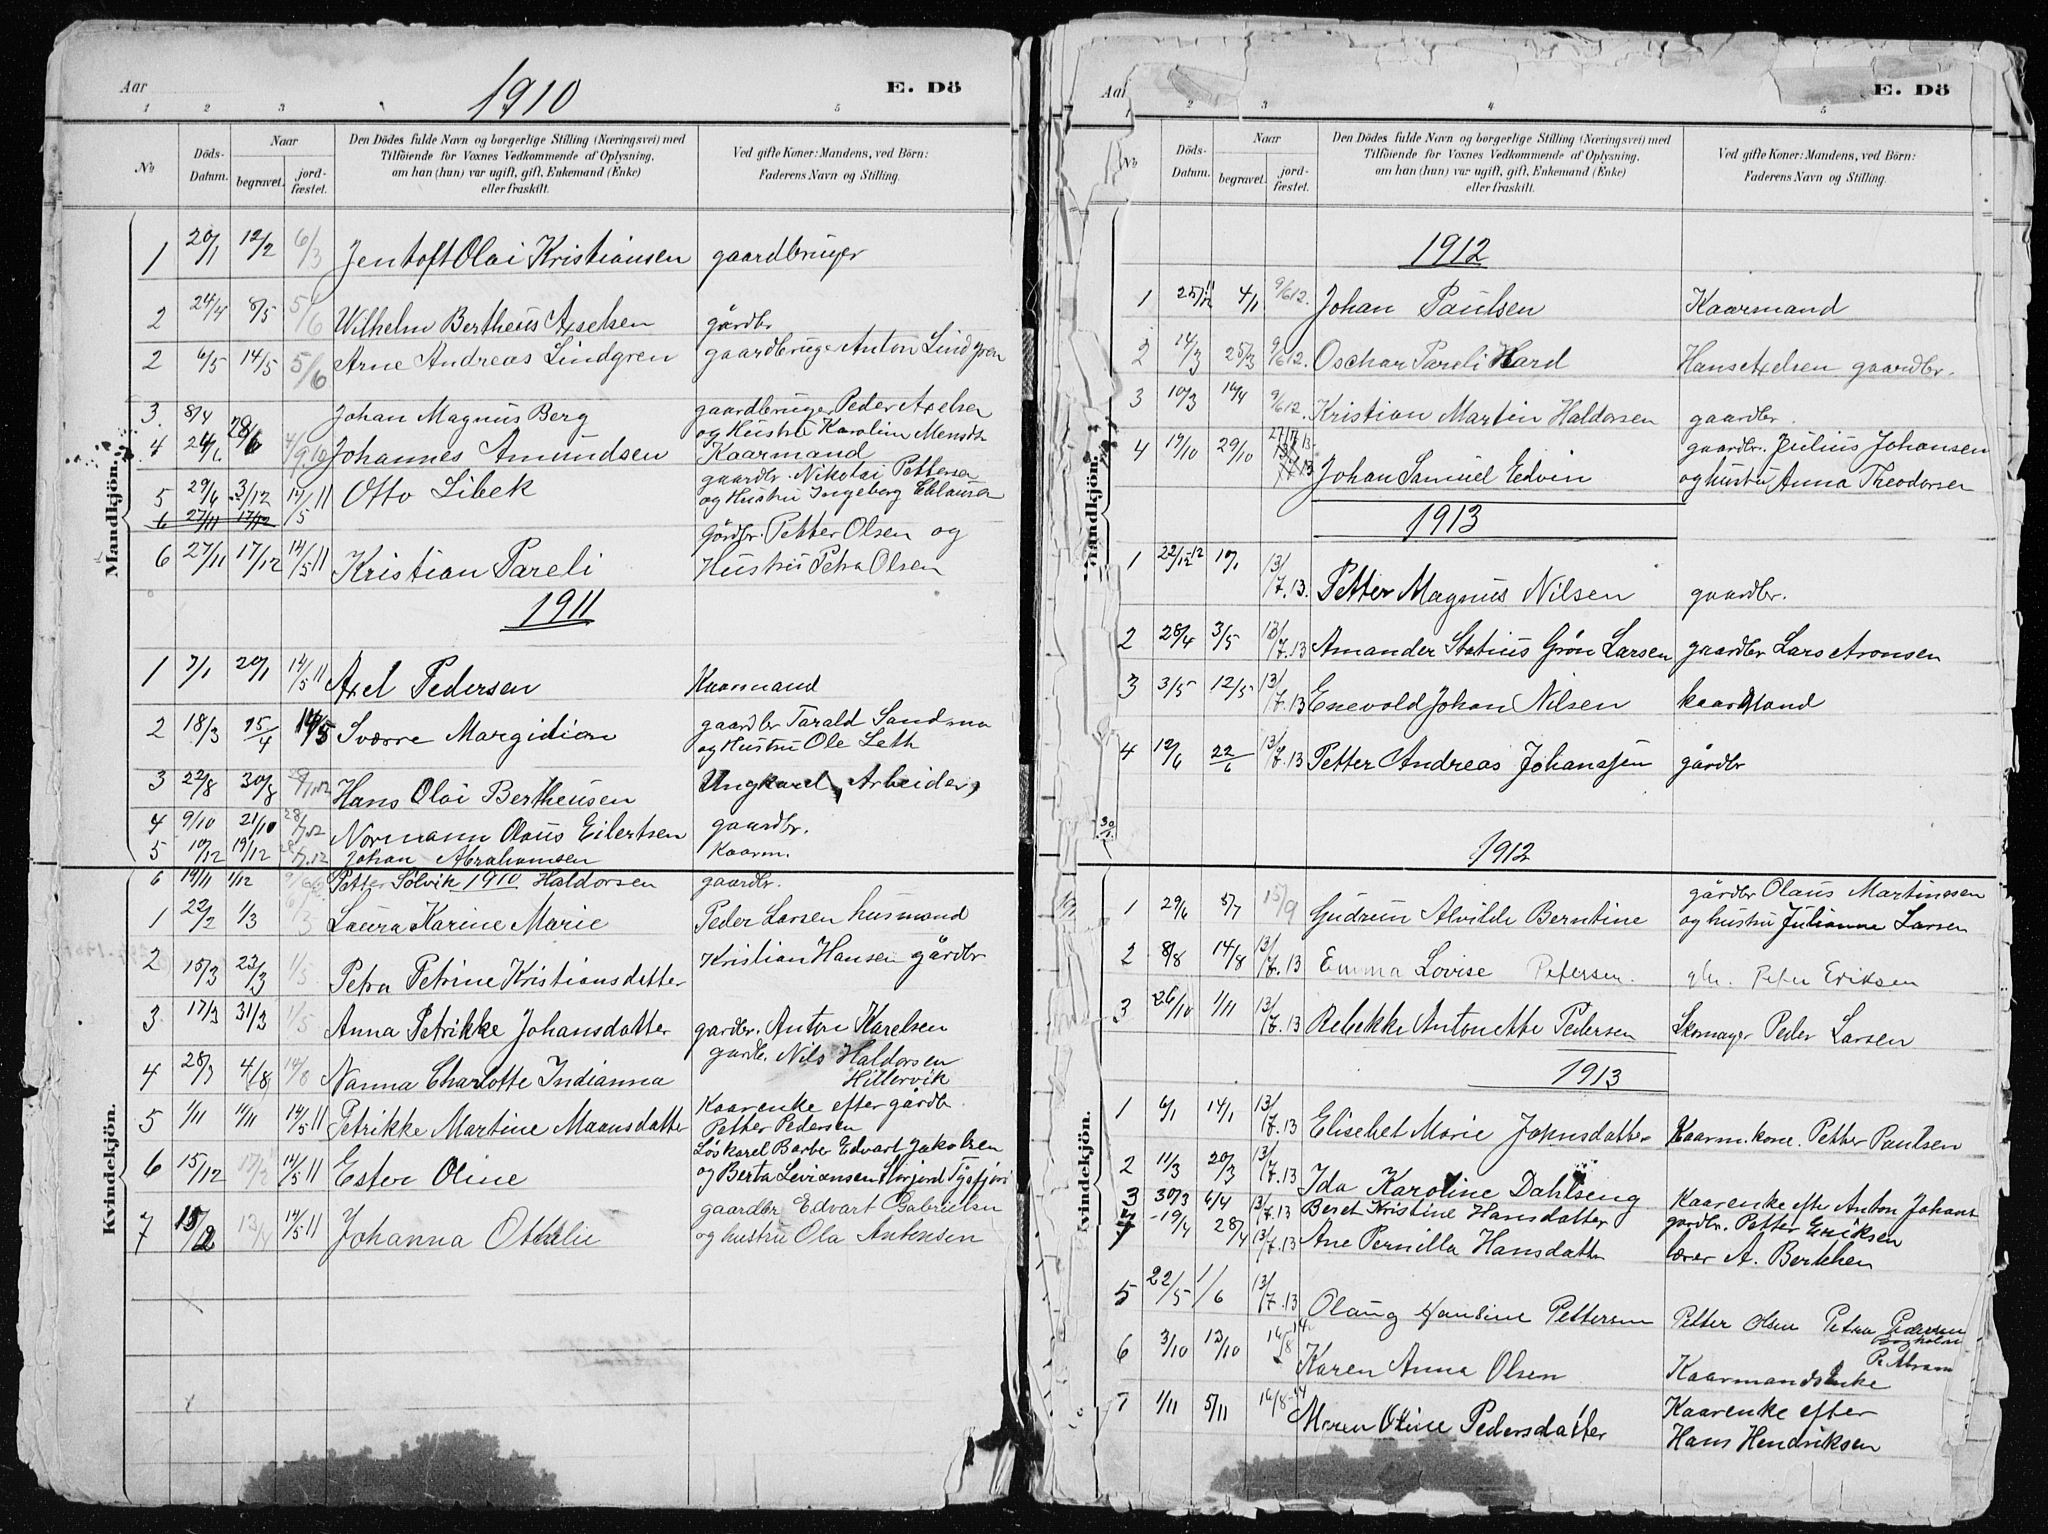 Aar
1910
E. Dö
1 2 3 5
No
Döds-Datum.
Naar
begravet.
jord-fæstet.
Den Dödes fulde Navn og borgerlige Stilling (Næringsvei) med
Tilföiende for Voxnes Vedkommende af Oplysning,
om han (hun) var ugift, gift, Enkemand (Enke)
eller fraskilt.
Ved gifte Koner: Mandens, ved Börn:
Faderens Navn og Stilling.
Mandkjön.
1 20/1 12/2 6/3 Jentoft Olai Kristiansen gaardbruger
2 24/4 8/5 5/6 Wilhelm Bertheus Axelsen gårdbr
2 6/5 14/5 5/6 Arne Andreas Lindgren gaardbruger Anton Lindgren
3. 8/4 Johan Magnus Berg gaardbruger Peder Axelsen
og Hustru Karolin
4 28/6 Johannes Amundsen Kaarmand
5 29/6 3/12 14/5 11 Otto Libek gaardbr. Nikolai Pettersen
og Hustru Ingeberg
6 27/11 17/12
6 27/11 17/12 14/5 11 Kristian Pareli gårdbr. Petter Olsen og
Hustru Petra Olsen
1911
1 7/1 20/1 14/5 11 Axel Pedersen Kaarmand
2 18/3 25/4 14/5 Sværre Margidion gaardbr Tarald Sandmo
og Hustru Ole Leth
3 22/8 30/8 Hans Olai Bertheusen Ungkarl, Arbeider
4 9/10 21/10 Normann Olaus Eilertsen gaardbr.
5 10/12 19/12 Johan Abrahamsen Kaarm.
6 19/11 1/12 Petter Solvik Haldorsen gaardbr.
1910
Kvindekjön.
1 22/2 1/3 6/3 Laura Karine Marie Peder Larsen husmand
2 15/3 23/3 1/5 Petra Petrine Kristiansdatter Kristian Hansen gårdbr
3 17/3 31/3 1/5 Anna Petrikke Johansdatter gardbr. Anton Karelsen
4 28/7 4/8 14/8 Nanna Charlotte Indianna gardbr. Nils Haldorsen
Hillervik
5 1/11 11/11 14/5 11 Petrikke Martine Maansdatter Kaarenke efter gårdb.
Petter Pedersen
6 15/12 14/5 11 Ester Oline Løskarl Barber Edvart Jakobsen
og Berta Leviansen Storjord Tysfjord
7 15/2 14/5 11 Johanna Othelie gaardbr Edvart Gabrielsen
og hustru Ola Antonsen
Aar
E. Dö
2 3 4 5
No
Döds-Datum.
Naar
begravet.
jord-fæstet.
Den Dödes fulde Navn og borgerlige Stilling (Næringsvei) med
Tilföiende for Voxnes Vedkommende af Oplysning,
om han (hun) var ugift, gift, Enkemand (Enke)
eller fraskilt.
Ved gifte Koner: Mandens, ved Börn:
Faderens Navn og Stilling.
Mandkjön.
1912
1 4/1 9/6 12. Johan Paulsen Kaarmand
2 14/3 25/3 9/6 12. Oschar Pareli Hard Hans Axelsen gaardbr.
3 10/3 14/4 9/6 12. Kristian Martin Haldorsen gaardbr.
4 19/10 29/10 Johan Samuel Edvin gaardbr. Julius Johansen
og hustru Anna Theodorsen
1913
1 22/12-12 10/1 13/7.13. Petter Magnus Nilsen gaardbr.
2 28/4 3/5 13/7.13 Amander Statius Grøn Larsen gaardbr Lars Aronsen
3 3/5 12/5 13/7.13 Enevold Johan Nilsen kaarmand
4 12/6 22/6 13/7.13 Petter Andreas Johansen gårdbr
1912
Kvindekjön.
1 29/6 5/7 15/9 Gudrun Alvilde Berntine gårdbr Olaus Martinesen
og hustru Julianne Larsen
2 8/8 14/8 13/7.13 Emma Lovise Petersen. Peter Eriksen
3 26/10 1/11 13/7.13 Rebekke Antonette Pedersen Skomager Peder Larsen
1913
1 6/1 14/1 13/7.13 Elisebet Marie Johnsdatter Kaarm. kone. Petter Paulsen
2 11/3 20/3 13/7.13 Ida Karoline Dahlseng Kaarenke efte Anton Johans
3 30/3 6/4 13/7.13 Beret Kristine Hansdatter gardbr. Petter Eriksen
4 19/4 28/4 13/7.13 Ane Pernilla Hansdatter lærer A. Berthen
5 22/5 1/6 13/7.13 Olaug Hansine Pettersen Petter Olsen Petra Pedersen
6 3/10 13/10 Karen Anna Olsen Kaarmandsenke
P. Abram
7 1/11 5/11 16/8-14 Maren Oline Pedersdatter Kaarenke efter
Hans Hendriksen